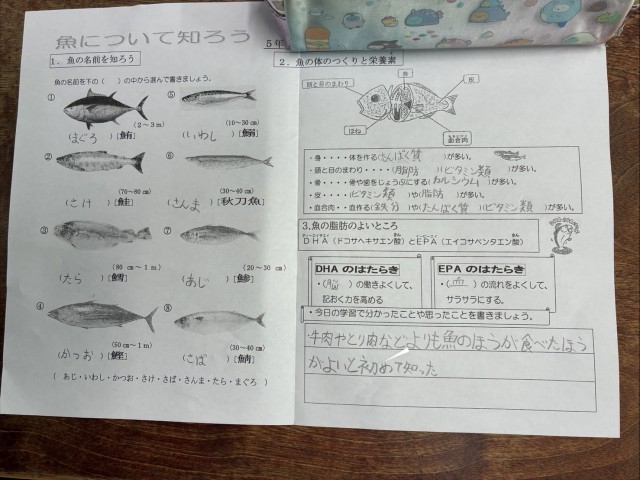 魚について知ろう
5年
1. 魚の名前を知ろう
魚の名前を下の（　）の中から選んで書きましょう。
①
(2～3m)
(まぐろ)[鮪]
⑤
(10～30㎝)
(いわし)[鰯]
②
(70～80㎝)
(さけ)[鮭]
⑥
(30～40㎝)
(さんま)[秋刀魚]
③
(80㎝～1m)
(たら)[鱈]
⑦
(20～30㎝)
(あじ)[鯵]
④
(50㎝～1m)
(かつお)[鰹]
⑧
(30～40㎝)
(さば)[鯖]
(あじ・いわし・かつお・さけ・さば・さんま・たら・まぐろ)
2. 魚の体のつくりと栄養素
頭と目のまわり
身
皮
ほね
血合肉
・身・・・・体を作る(たんぱく質)が多い。
・頭と目のまわり・・・・(脂肪)(ビタミン類)が多い。
・骨・・・・骨や歯をじょうぶにする(カルシウム)が多い。
・皮・・・・(ビタミン類)や(脂肪)が多い。
・血合肉・・血作る(鉄分)や(たんぱく質)(ビタミン類)が多い。
3,魚の脂肪のよいところ
DHA(ドコサヘキサエン酸)とEPA(エイコサペンタエン酸)
DHAのはたらき
・(脳)の働きよくして、
記おく力を高める
EPAのはたらき
・(血)の流れをよくして、
サラサラにする。
・今日の学習で分かったことや思ったことを書きましょう。
・牛肉やとり肉などよりも魚のほうが食べたほう
がよいと初めて知った